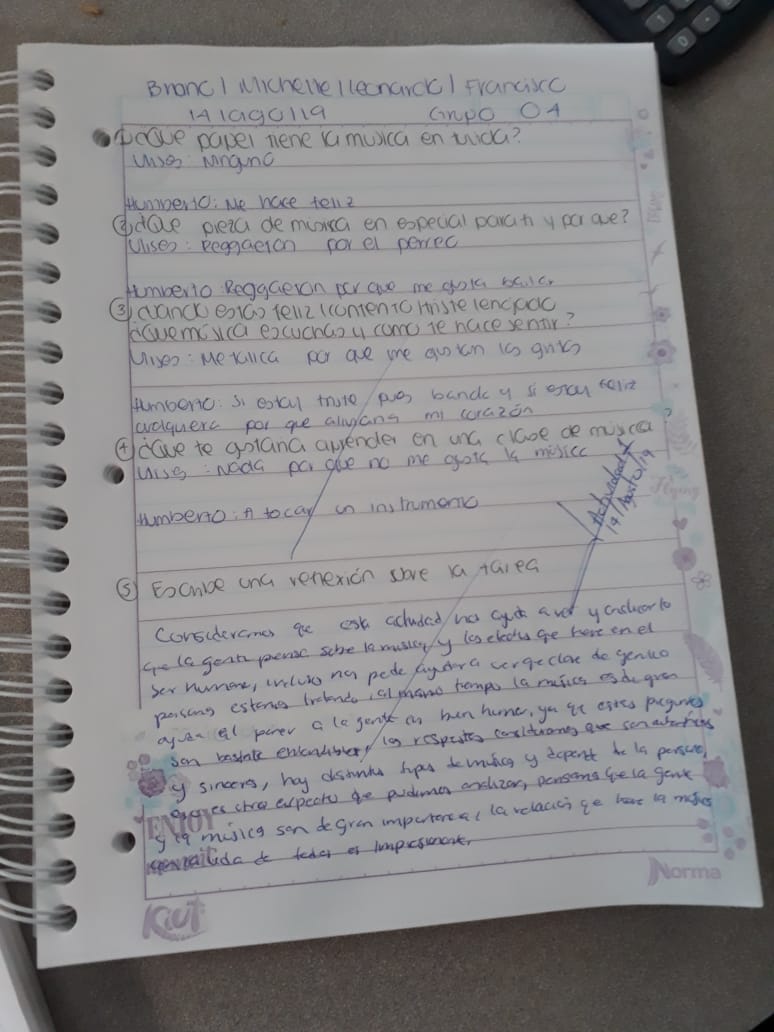 Branc | Michelle | Leonardc | Francisco
14 | ago | 19 Grupo 04
① ¿Que papel tiene la musica en tu vida?
Ulises: Ninguno
Humberto: Me hace feliz
② ¿Que pieza de música en especial para ti y por que?
Ulises: Reggaeton por el perrec
Humberto: Reggaeton por que me gusta bailar
③ Cuando estas feliz | contento | triste | enojado
¿que música escuchas y como te hace sentir?
Ulises: Metalica por que me gustan los gritos
Humberto: Si estoy triste pues banda y si estoy feliz
cualquiera por que aliviana mi corazón
④ ¿Que te gustaria aprender en una clase de música?
Ulises: Nada por que no me gusta la música
Humberto: A tocar un instrumento
Actividad 1
14/Agosto/19
Flying
⑤ Escribe una reflexión sobre la tarea
Consideramos que esta actividad nos ayuda a ver y
que la gente piensa sobre la musica, y los efectos que tiene en el
ser humano, incluso nos puede ayudar a ver que clase de genero
persona estamos tratando, al mismo tiempo la música es de gran
ayuda al poner a la gente en buen humor, ya que estas preguntas
son bastante entendibles, las respuestas consideramos que son autenticas
y sinceras, hay distintos tipos de música y depende de la persona,
es otro aspecto que pudimos analizar, pensamos que la gente
y la música son de gran importancia, la relación que tiene la música
en la vida de todos es impresionante.
ENJOY
Kiut
Norma